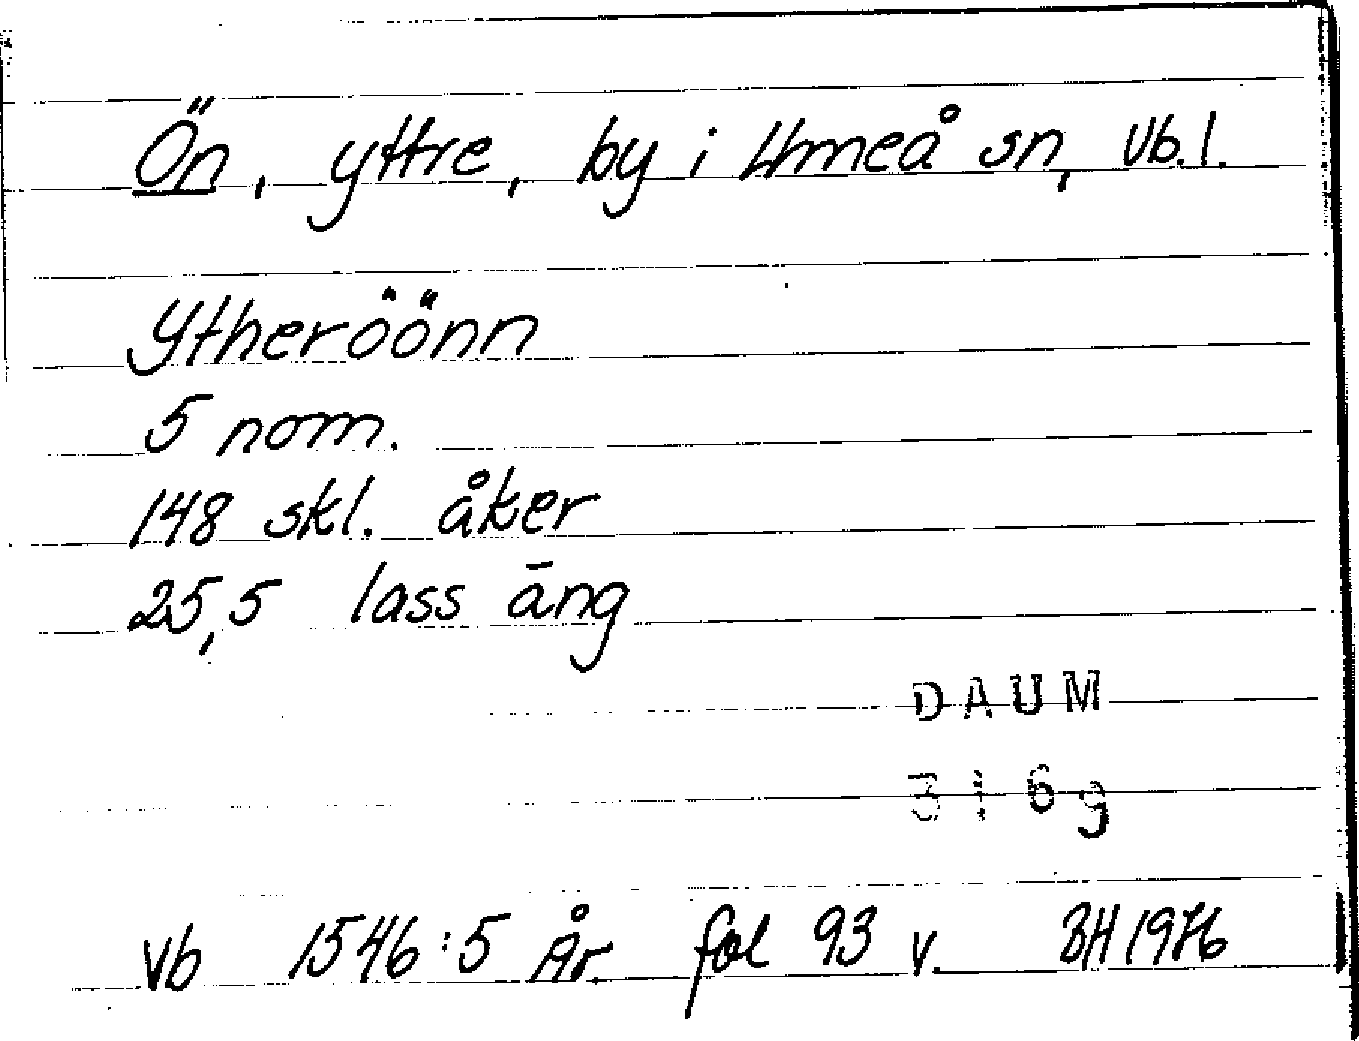 Ön, yttre, by i Umeå sn, Vb.l.
Ytheröönn
5 nom.
148 skl. åker
25,5 lass äng
DAUM
3169
Vb 1546:5 År. fol 93 v. BH 1976